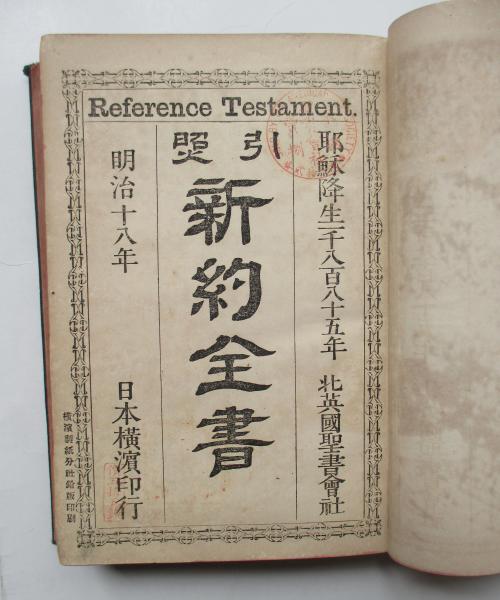 Reference Testament.
耶穌降生一千八百八十五年 北英國聖書會社
引照
新約全書
明治十八年
日本橫濱印行
橫濱製紙分社鉛版印刷